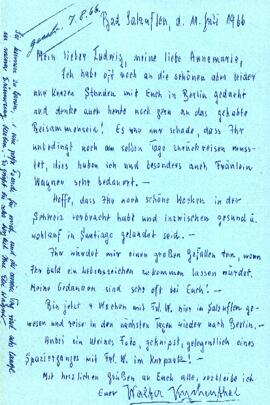 geantw. 7.8.66.
Bad Salzuflen, d. 11. Juli 1966
Mein lieber Ludwig, meine liebe Annemarie,
Ich habe oft noch an die schönen aber leider
nur kurzen Stunden mit Euch in Berlin gedacht
und denke auch heute noch gern an das gehabte
Beisammensein! Es war nur schade, dass Ihr
unbedingt noch am selben Tage zurückreisen muss-
tet, dies haben ich und besonders auch Fräulein
Wagner sehr bedauert. —
Hoffe, dass Ihr noch schöne Wochen in der
Schweiz verbracht habt und inzwischen gesund u.
wohlauf in Santiago gelandet seid. —
Ihr würdet mir einen großen Gefallen tun, wenn
Ihr bald ein Lebenszeichen zukommen lassen würdet.
Meine Gedanken sind sehr oft bei Euch! —
Bin jetzt 4 Wochen mit Frl. W. hier in Salzuflen ge-
wesen und reise in den nächsten Tagen wieder nach Berlin. —
Anbei ein kleines Foto, geknipst gelegentlich eines
Spazierganges mit Frl. W. im Kurpark! —
Mit herzlichen Grüßen an Euch alle, verbleibe ich
Euer Walter